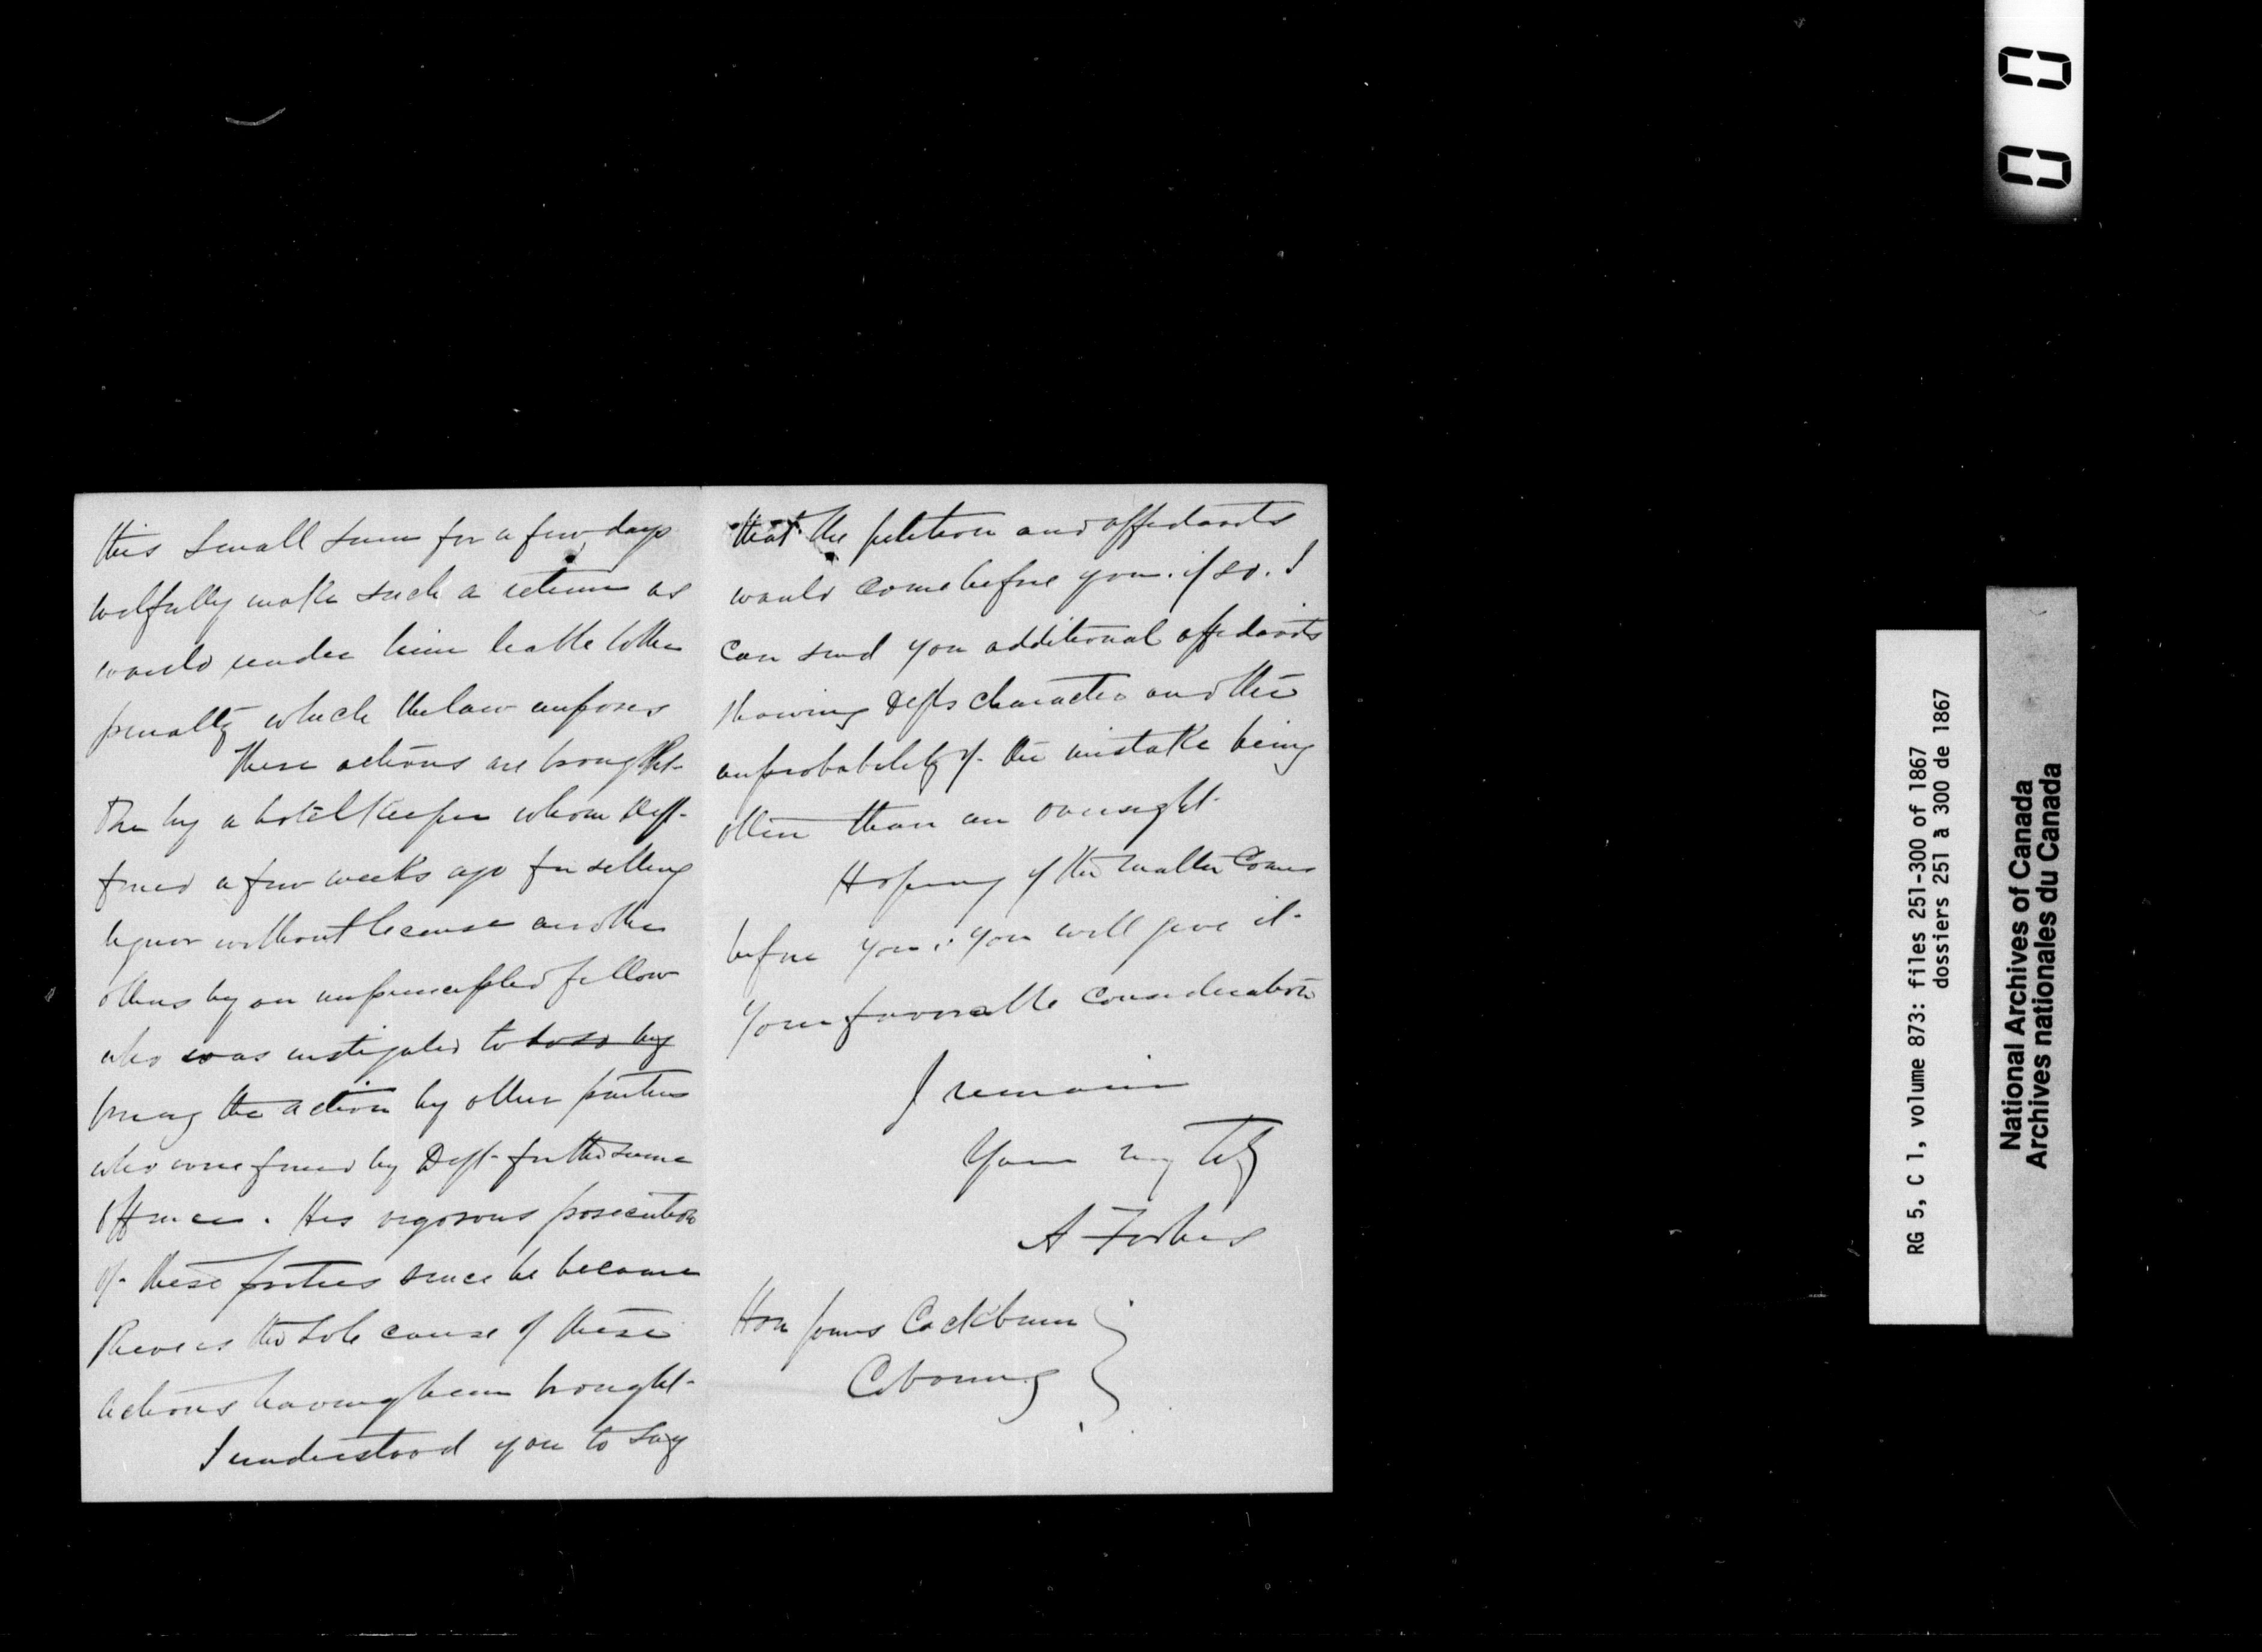 this small sum for a few days
wilfully make such a return as
would render him liable to the
penalty which the law imposes
These actions are brought
One by a hotel Keeper whom Deft.
fined a few weeks ago for selling
liquor without license and the
others by an unprincipled fellow
who was instigated to do so by
bring the action by other parties
who were fined by Deft. for the same
Offences. His vigorous prosecution
of these parties since he became
Reeve is the sole cause of these
actions having been brought.
I understood you to say
that the petition and affidavits
would come before you. if so. I
can send you additional affidavits
showing Defts character and the
improbability of the mistake being
other than an oversight.
Hoping if the matter comes
before you, you will give it
your favorable consideration
I remain
Yours very Tly
A Forbes
Hon James Cockburn
Cobourg
0 0
RG 5, C 1, volume 873: files 251-300 of 1867
dossiers 251 à 300 de 1867
National Archives of Canada
Archives nationales du Canada